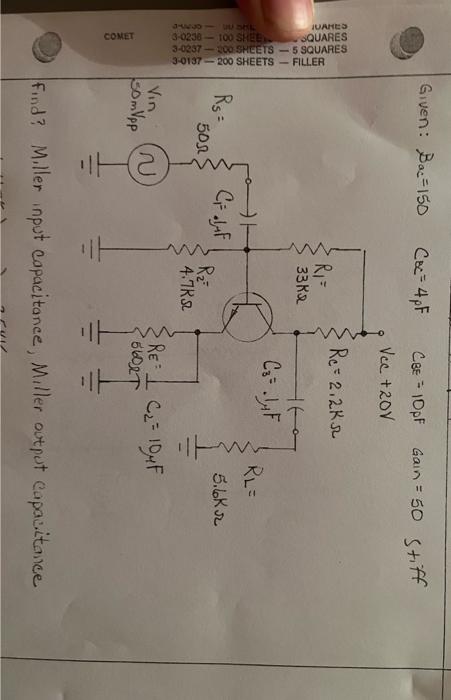 COMET
3-0236 — 100 SHEETS — SQUARES
3-0237 — 200 SHEETS — 5 SQUARES
3-0137 — 200 SHEETS — FILLER
Given: βac=150 CBC=4pF CBE=10pF Gain=50 Stiff
Vcc +20V
R1=
33KΩ
Rc=2.2KΩ
C3=.1μF
RL=
5.6KΩ
Rs=
50Ω
C1=.1μF
R2=
4.7KΩ
RE=
560Ω
C2=10μF
Vin
50mVpp
find? Miller input capacitance, Miller output capacitance